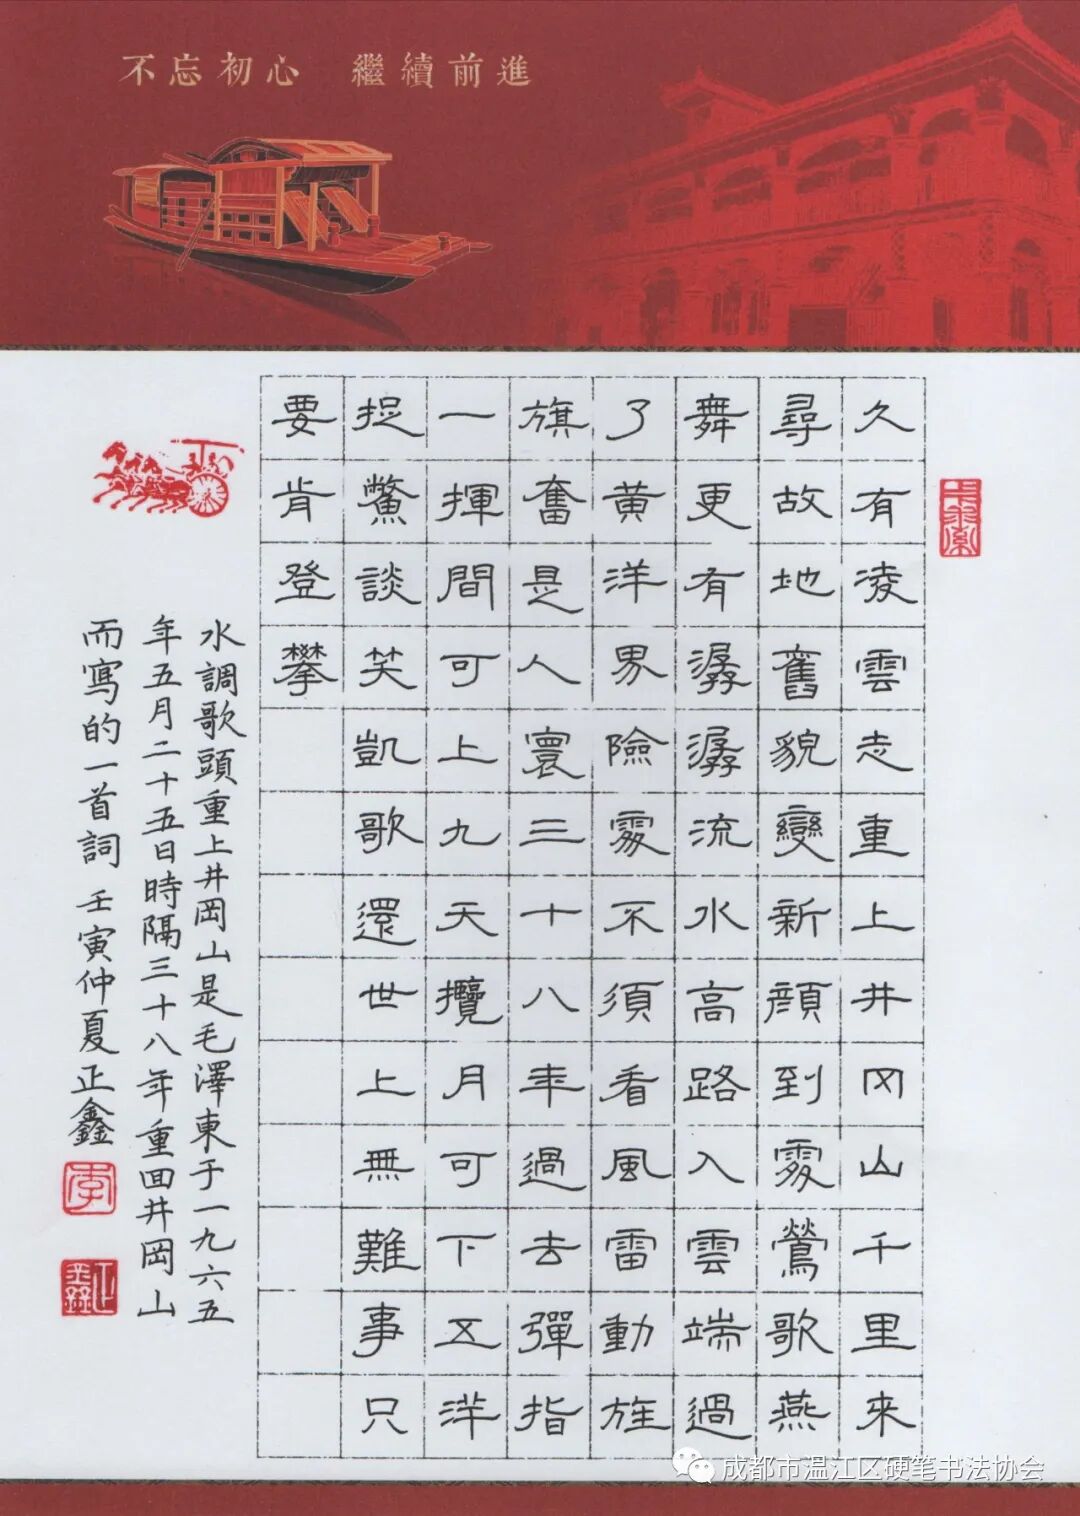 不忘初心　繼續前進
久有凌雲志重上井冈山千里來
尋故地舊貌變新顔到處鶯歌燕
舞更有潺潺流水高路入雲端過
了黄洋界險處不須看風雷動旌
旗奮是人寰三十八年過去彈指
一揮間可上九天攬月可下五洋
捉鱉談笑凱歌還世上無難事只
要肯登攀
水調歌頭重上井岡山是毛澤東于一九六五
年五月二十五日時隔三十八年重回井岡山
而寫的一首詞 壬寅仲夏正鑫
李
正鑫
成都市温江区硬笔书法协会